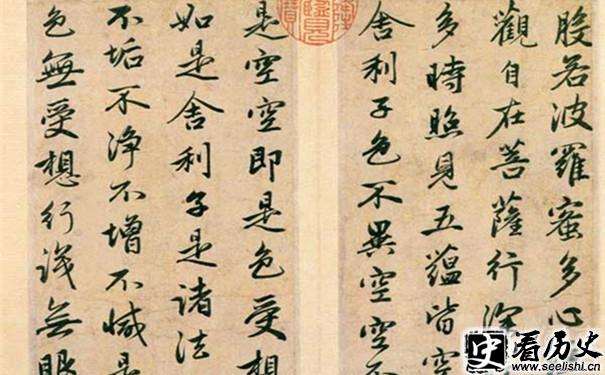 般若波羅蜜多心
觀自在菩薩行深
多時照見五蘊皆空
舍利子色不異空空不
是空空即是色受想
如是舍利子是諸法
不垢不淨不增不減是
色無受想行識無眼
史 看历史
www.seelishi.cn